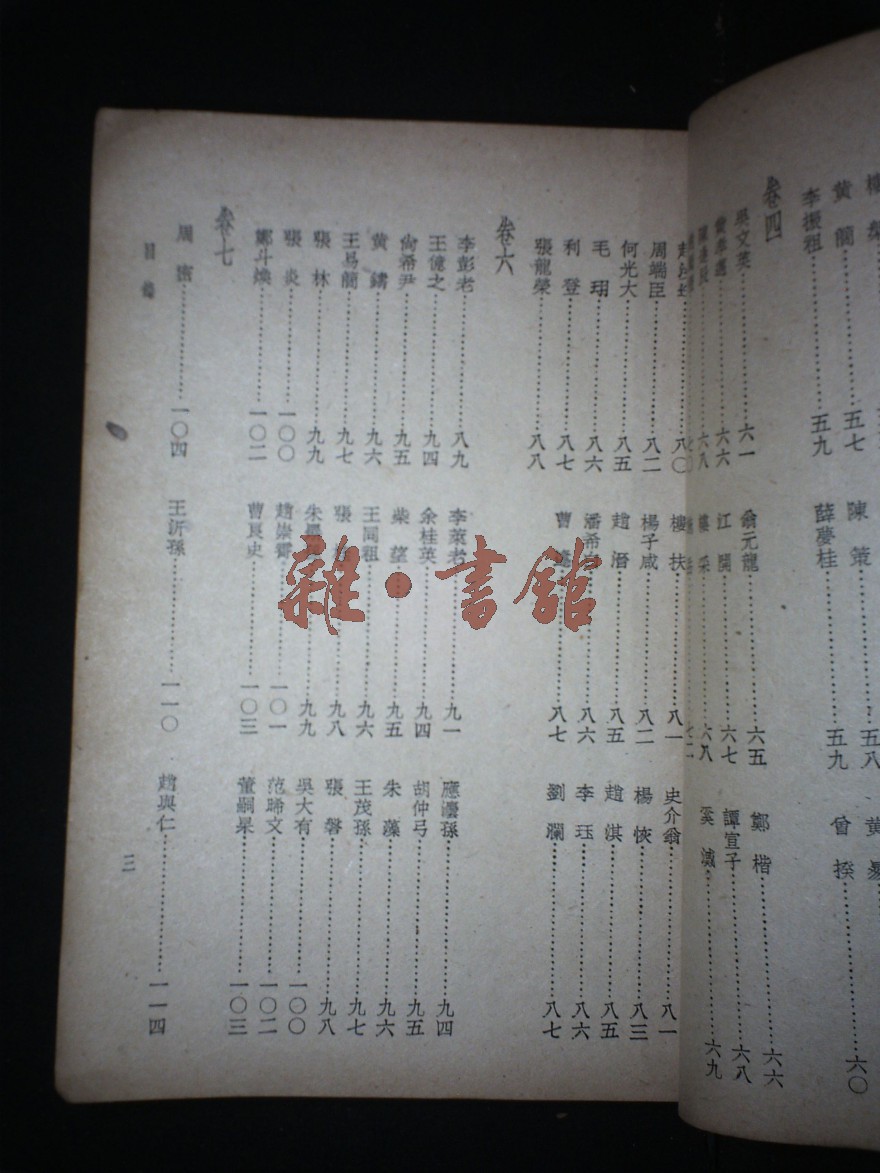 黃簡……五七 陳策……五八 黃
李振祖……五九 薛夢桂……五九 曾揆……六〇
卷四
吳文英……六一 翁元龍……六五 鄭楷……六六
黃孝邁……六六 江開……六七 譚宣子……六八
陳逢辰……六八 樓采……六八 奚㵄……六九
七二
八〇 樓扶……八一 史介翁……八一
周端臣……八二 楊子咸……八二 楊恢……八三
何光大……八五 趙溍……八五 趙淇……八五
毛珝……八六 潘希……八六 李珏……八六
利登……八七 曹……八七 劉瀾……八七
張龍榮……八八
卷六
李彭老……八九 李萊老……九一 應灋孫……九四
王億之……九四 余桂英……九四 胡仲弓……九五
尚希尹……九五 柴望……九五 朱藻……九六
黃鑄……九六 王同祖……九六 王茂孫……九七
王易簡……九七 張……九八 張磐……九八
張林……九九 朱……九九 吳大有……一〇〇
張炎……一〇〇 趙崇霄……一〇一 范晞文……一〇二
鄭斗煥……一〇二 曹良史……一〇三 董嗣杲……一〇三
卷七
周密……一〇四 王沂孫……一一〇 趙與仁……一一四
目錄 三
雜·書館